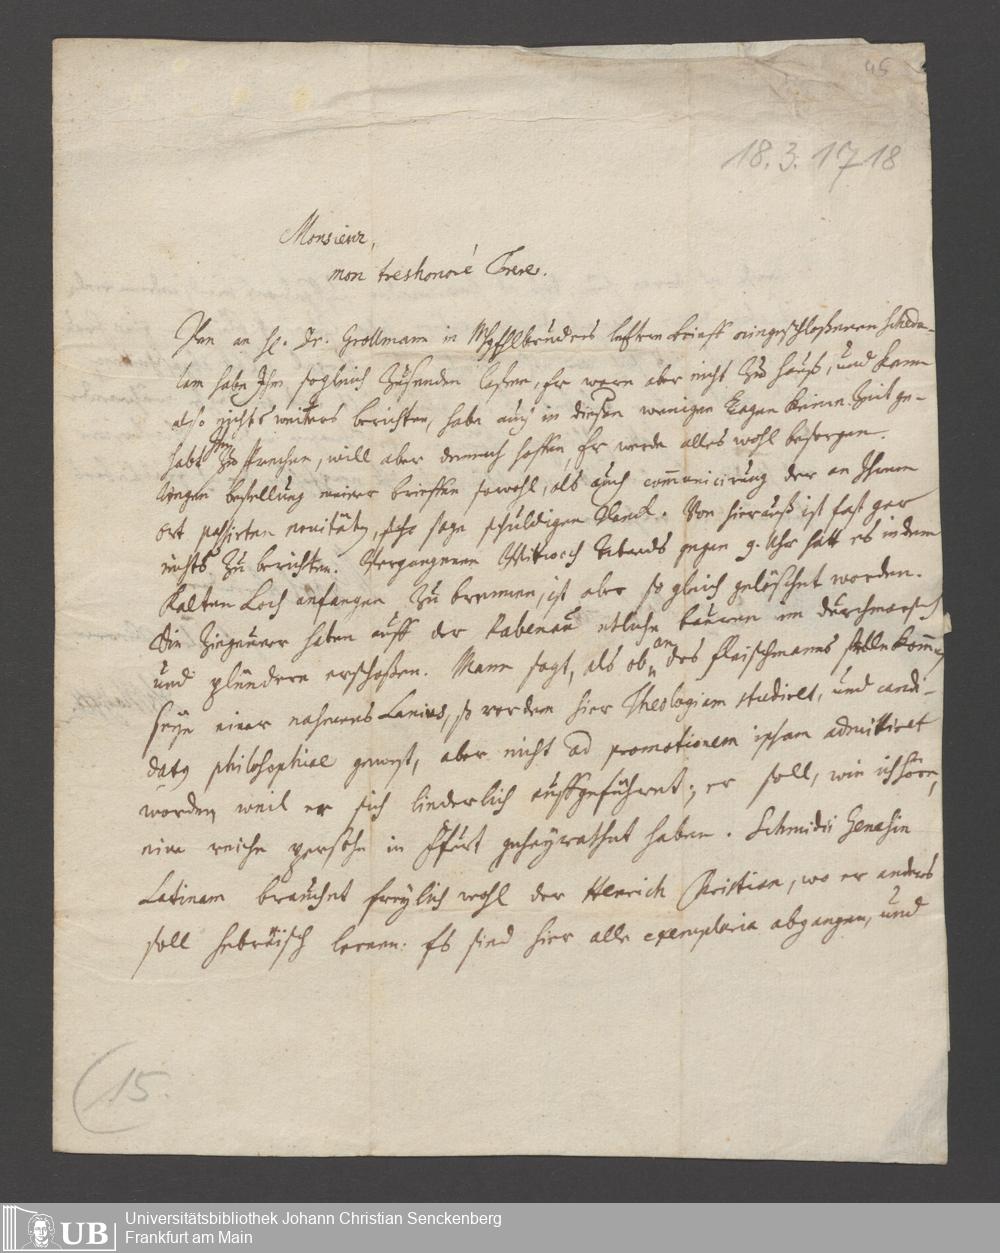 45
18.3.1718
Monsieur,
mon treshonoré Frere.
Den an H. Dr. Grollmann in letzten brieff eingeschloßenen Schedu-
lam habe Ihm sogleich zusenden laßen, Er ware aber nicht zu Hauß, und kann
also nichts weiters berichten, habe auch in dießen wenigen Tagen keine Zeit ge-
habt Ihn zu sprechen, will aber dennoch hoffen, Er werde alles wohl besorgen.
Wegen bestellung meiner brieffen sowohl, als auch communicirung der an Ihrem
Ort passirten novitäten, sage schuldigen Danck. Von hierauß ist fast gar
nichts zu berichten. Vergangenen Mitwoch Abends gegen 9. Uhr hatt es in dem
Kalten Loch anfangen zu brennen, ist aber so gleich gelöschet worden.
Die Ziegeuner haben auff der Rabenau etliche bauren im durchmarsch
und plündern erschoßen. Mann sagt, als ob an des Fleischmanns stelle komen
seye einer nahmens Lanius, so vordem hier Theologiam studiret, und candi-
datus philosophiae gewest, aber nicht ad promotionem ipsam admittiret
worden weil er sich liederlich auffgeführet; er soll, wie ich höre,
eine reiche persohn in geheyrathet haben. Schmidii Genesin
Latinam brauchet freylich wohl der Henrich Christian, wo er anders
soll hebräisch lernen: Es sind hier alle exemplaria abgangen, und
(15.
UB
Universitätsbibliothek Johann Christian Senckenberg
Frankfurt am Main